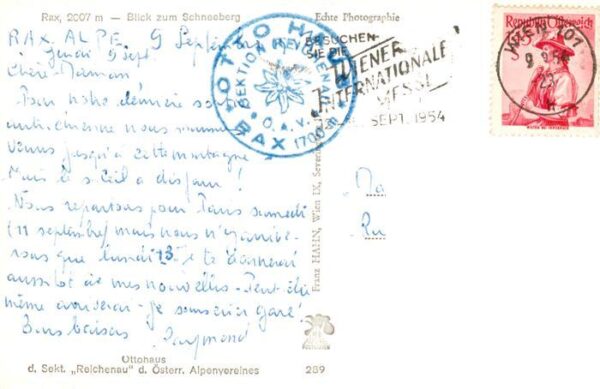 Rax, 2007 m — Blick zum Schneeberg
Echte Photographie
RAX. ALPE. 9 Septembre
Jeudi 9 Sept
Chère Maman
Pour notre dernière
autrichienne nous sommes
venus jusqu'à cette montagne
Mais le soleil a disparu!
Nous repartons pour Paris samedi
(11 septembre) mais nous n'y arrive-
rons que lundi 13. Je te donnerai
aussitôt de mes nouvelles. Peut-être
même
Bons baisers Raymond
Ottohaus
d. Sekt. „Reichenau" d. Österr. Alpenvereines
289
OTTO HAUS
SEKTION REICHENAU
Ö. A. V.
RAX 1700 m
BESUCHEN
SIE DIE
WIENER
INTERNATIONALE
MESSE
SEPT. 1954
Republik Österreich
WIEN 101
Franz HAHN, Wien IX, Severin
Ma